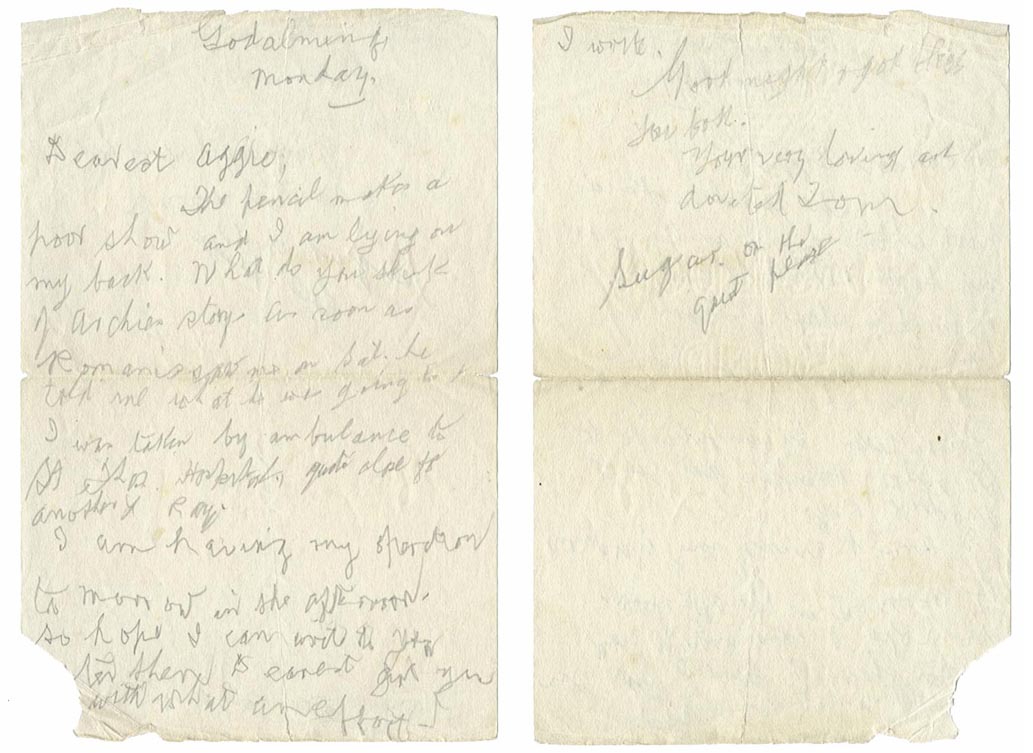 Godalming
Monday.
Dearest Aggie,
The pencil makes a
poor show and I am lying on
my back. What do you think
of Archies story as soon as
Romanis saw me on Sat. he
told me what he was going to
I was taken by ambulance to
St Thos. Hospital, quite close for
another X Ray.
I am having my operation
to morrow in the afternoon.
so hope I can write to you
then. Dearest girl you
with what an effort
I write.
Good night & God bless
you both.
Your very loving and
devoted Tom.
Sugar. on the
quiet please